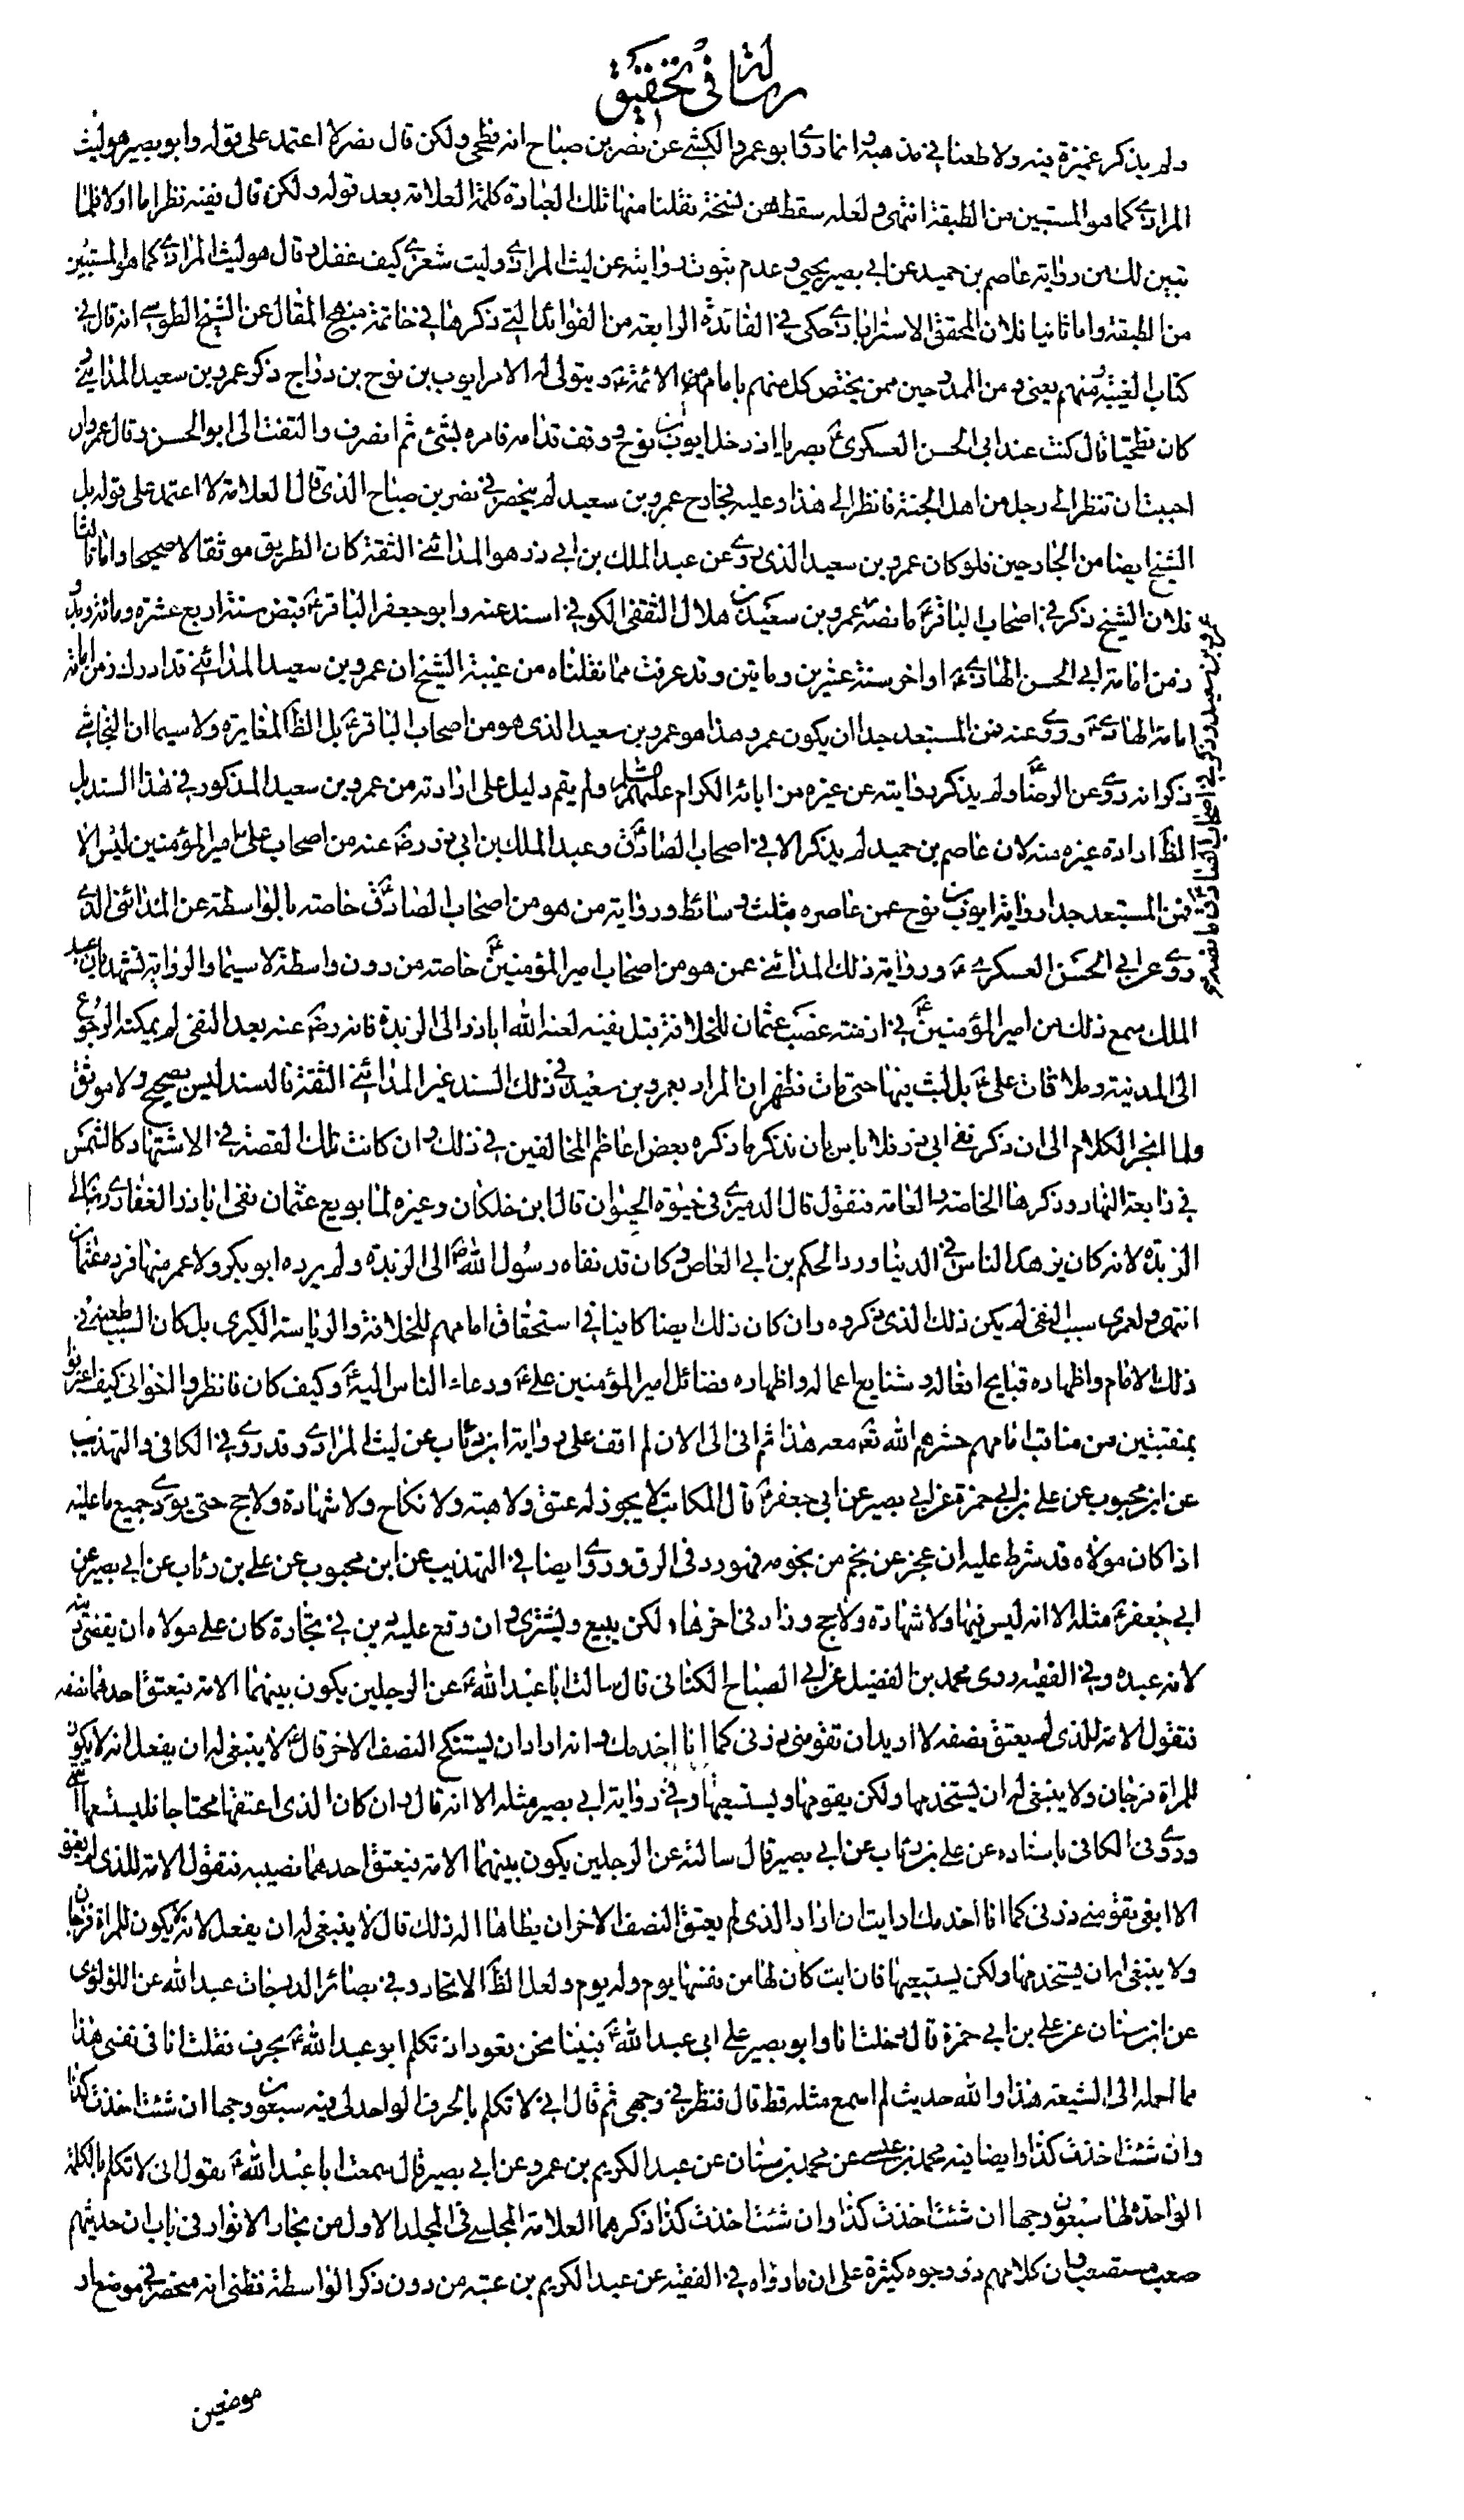 رسالة في تحقيق
ولم يذكر غميزة فيه ولا طعنا في مذهبه وانما روى ابو عمرو الكشي عن نصر بن صباح انه فطحي ولكن قال نصر لا اعتمد على قوله وابو بصير هو ليث
المرادي كما هو المستبين من الطبقة انتهى ولعله سقط من نسخة نقلنا منها تلك العبادة كلمة العلامة بعد قوله ولكن قال ففيه نظر اما اولا فلما
تبين لك من رواية عاصم بن حميد عن ابي بصير يحيى وعدم ثبوت روايته عن ليث المرادي وليت شعري كيف غفل وقال هو ليث المرادي كما هو المستبين
من الطبقة واما ثانيا فلان المحقق الاسترابادي حكى في الفائدة الرابعة من الفوائد التي ذكرها في خاتمة منهج المقال عن الشيخ الطوسي انه قال في
كتاب الغيبة ومنهم يعني ومن الممدوحين ممن يختص كل منهم بامام من الائمة ع ويتولى له الامر ايوب بن نوح بن دراج ذكر عمرو بن سعيد المدائني
كان فطحيا قال كنت عند ابي الحسن العسكري ع بصريا اذ دخل ايوب بن نوح ووقف قدامه فامره بشئ ثم انصرف والتفت الى ابو الحسن وقال يا عمرو ان
احببت ان تنظر الى رجل من اهل الجنة فانظر الى هذا وعليه فجارح عمرو بن سعيد لم ينحصر في نصر بن صباح الذي قال العلامة لا اعتمد على قوله بل
الشيخ ايضا من الجارحين فلو كان عمرو بن سعيد الذي روى عن عبد الملك بن ابي ذر هو المدائني الثقة كان الطريق موثقا لا صحيحا واما ثالثا
فلان الشيخ ذكر في اصحاب الباقر ع ما نصه عمرو بن سعيد بن هلال الثقفي الكوفي اسند عنه وابو جعفر الباقر ع قبض سنة اربع عشرة ومائة وبدو
زمن امامة ابي الحسن الهادي ع اواخر سنة عشرين وماتين وقد عرفت مما نقلناه من غيبة الشيخ ان عمرو بن سعيد المدائني قد ادرك زمن امامة
امامة الهادي ع وروى عنه فمن المستبعد جدا ان يكون عمرو هذا هو عمرو بن سعيد الذي هو من اصحاب الباقر ع بل الظ المغايرة ولا سيما ان النجاشي
ذكر انه روى عن الرضا ع ولم يذكر روايته عن غيره من ابائه الكرام عليهم السلام ولم يقم دليل على ارادته من عمرو بن سعيد المذكور في هذا السند بل
الظ ارادة غيره منه لان عاصم بن حميد لم يذكر الا في اصحاب الصادق ع وعبد الملك بن ابي ذر رض عنه من اصحاب علي امير المؤمنين ليس الا
فمن المستبعد جدا رواية ايوب بن نوح عمن عاصره بثلث وسائط ورواية من هو من اصحاب الصادق ع خاصة بالواسطة عن المدائني الذي
روى عن ابي الحسن العسكري ع ورواية ذلك المدائني عمن هو من اصحاب امير المؤمنين ع خاصة من دون واسطة لا سيما والرواية تشهد بان عبد
الملك سمع ذلك من امير المؤمنين ع في ازمنة غصب عثمان للخلافة قبل نفيه لعنه الله ابا ذر الى الربذة فانه رض عنه بعد النفي لم يمكنه الرجوع
الى المدينة وملاقات علي ع بل لبث فيها حتى مات فظهر ان المراد بعمرو بن سعيد في ذلك السند غير المدائني الثقة فالسند ليس بصحيح ولا موثق
ولما انجر الكلام الى ان ذكر نفي ابي ذر فلا باس بان نذكر ما ذكره بعض اعاظم المخالفين في ذلك وان كانت تلك القصة في الاشتهار كالشمس
في رابعة النهار وذكرها الخاصة والعامة فنقول قال الدميري في حيوة الحيوان قال ابن خلكان وغيره لما بويع عثمان نفى ابا ذر الغفاري رض الى
الربذة لانه كان يزهد الناس في الدنيا ورد الحكم بن ابي العاص وكان قد نفاه رسول الله ص الى الربذة ولم يرده ابو بكر ولا عمر منها فرده عثمان
انتهى ولعمري سبب النفي لم يكن ذلك الذي ذكروه وان كان ذلك ايضا كافيا في استحقاق امامهم للخلافة والرياسة الكبرى بل كان السبب طعنه في
ذلك الامام واظهاره قبايح افعاله وشنايع اعماله واظهاره فضائل امير المؤمنين علي ع ودعاء الناس اليه ع وكيف كان فانظروا اخواني كيف اعترفوا
بمنقبتين من مناقب امامهم حشرهم الله تع معه هذا ثم اني الى الان لم اقف على رواية ابن رئاب عن ليث المرادي وقد روى في الكافي والتهذيب
عن ابن محبوب عن علي بن ابي حمزة عن ابي بصير عن ابي جعفر ع قال المكاتب لا يجوز له عتق ولا هبة ولا نكاح ولا شهادة ولا حج حتى يودي جميع ما عليه
اذا كان مولاه قد شرط عليه ان عجز عن نجم من نجومه فهو رد في الرق وروى ايضا في التهذيب عن ابن محبوب عن علي بن رئاب عن ابي بصير عن
ابي جعفر ع مثله الا انه ليس فيها ولا شهادة ولا حج وزاد في اخرها ولكن يبيع ويشتري وان وقع عليه دين في تجارة كان على مولاه ان يقضي دينه
لانه عبده وفي الفقيه روى محمد بن الفضيل عن ابي الصباح الكناني قال سالت ابا عبد الله ع عن الرجلين يكون بينهما الامة فيعتق احدهما نصفه
فتقول الامة للذي لم يعتق نصفه لا اريد ان تقومني ذرني كما انا اخدمك وانه اراد ان يستنكح النصف الاخر قال ع لا ينبغي له ان يفعل انه لا يكون
للمراة فرجان ولا ينبغي له ان يستخدمها ولكن يقومها ويستسعيها وفي رواية ابي بصير مثله الا انه قال وان كان الذي اعتقها محتاجا فليستسعها انتهى
وروى في الكافي باسناده عن علي بن رئاب عن ابي بصير قال سالته عن الرجلين يكون بينهما الامة فيعتق احدهما نصيبه فتقول الامة للذي لم يعتق
الا ابغي تقومني ذرني كما انا اخدمك ارايت ان اراد الذي لم يعتق النصف الاخر ان يطاها اله ذلك قال لا ينبغي له ان يفعل لانه لا يكون للمراة فرجان
ولا ينبغي له ان يستخدمها ولكن يستسعيها فان ابت كان لها من نفسها يوم وله يوم ولعل الظ الاتحاد وفي بصائر الدرجات عبد الله عن اللؤلؤي
عن ابن سنان عن علي بن ابي حمزة قال دخلت انا وابو بصير على ابي عبد الله ع فبينا نحن قعود اذ تكلم ابو عبد الله ع بحرف فقلت انا في نفسي هذا
مما احمله الى الشيعة هذا والله حديث لم اسمع مثله قط قال فنظر في وجهي ثم قال اني لاتكلم بالحرف الواحد لي فيه سبعون وجها ان شئت اخذت كذا
وان شئت اخذت كذا وايضا فيه محمد بن عيسى عن محمد بن سنان عن عبد الكريم بن عمرو عن ابي بصير قال سمعت ابا عبد الله ع يقول اني لاتكلم بالكلمة
الواحدة لها سبعون وجها ان شئت اخذت كذا وان شئت اخذت كذا ذكرهما العلامة المجلسي في المجلد الاول من بحار الانوار في باب ان حديثهم
صعب مستصعب وان كلامهم ذو وجوه كثيرة على ان ما رواه في الفقيه عن عبد الكريم بن عتبة من دون ذكر الواسطة فظني انه منحصر في موضع او
موضعين